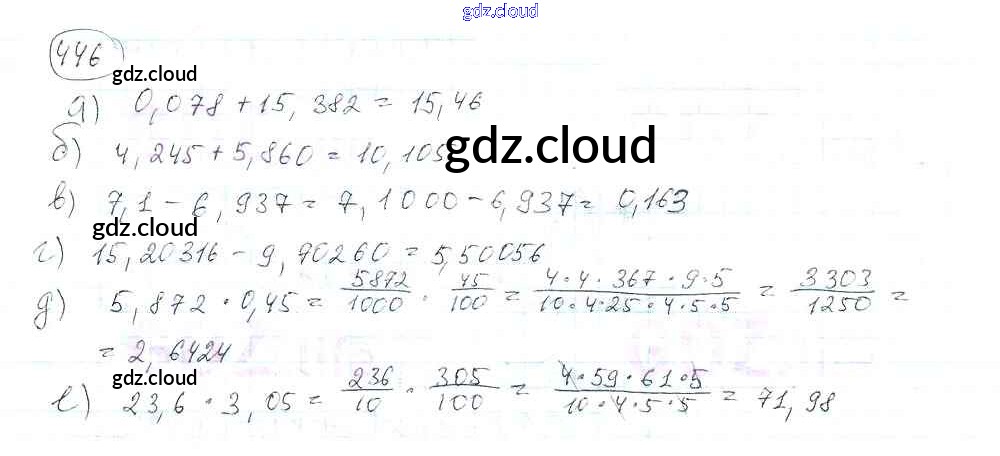 gdz.cloud
446
gdz.cloud
а) 0,078 + 15,382 = 15,46
б) 4,245 + 5,860 = 10,105
gdz.cloud
в) 7,1 - 6,937 = 7,1000 - 6,937 = 0,163
gdz.cloud
г) 15,20316 - 9,90260 = 5,50056
д) 5,872 · 0,45 = 5892/1000 · 45/100 = 4·4·367·9·5/10·4·25·4·5·5 = 3303/1250 =
= 2,6424
gdz.cloud
е) 23,6 · 3,05 = 236/10 · 305/100 = 4·59·61·5/10·4·5·5 = 71,98
gdz.cloud